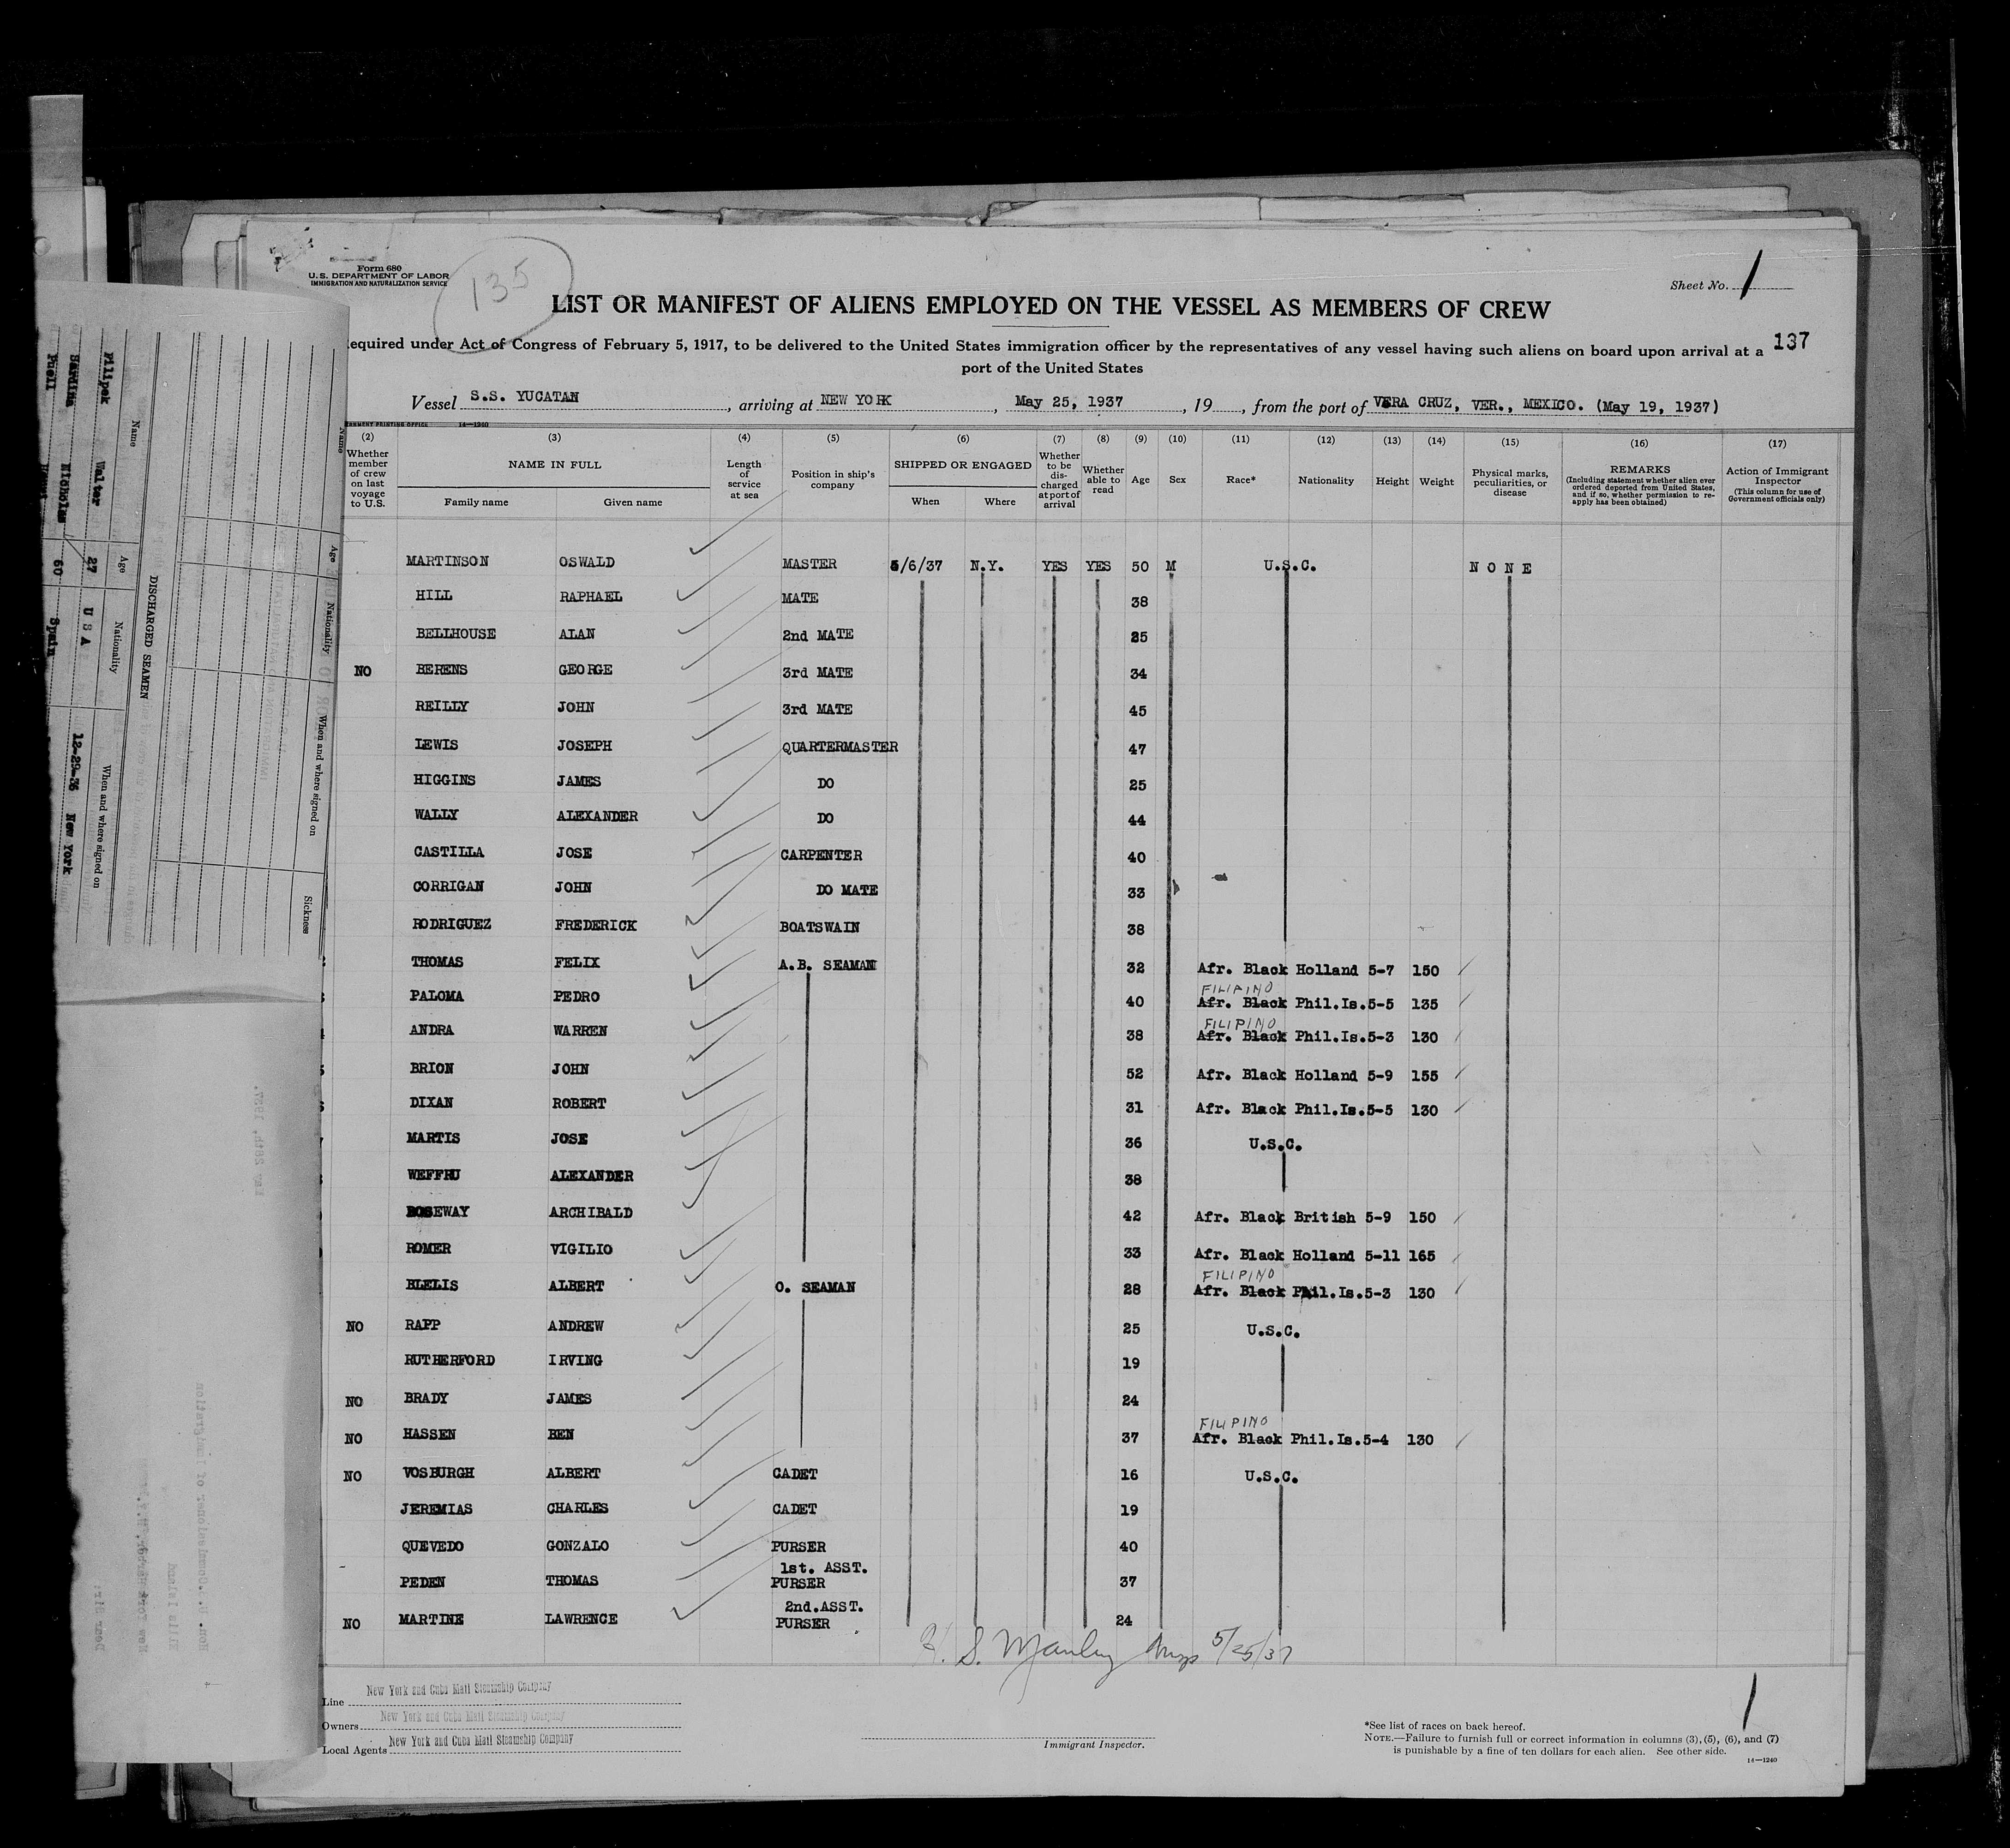 Form 680
U.S. DEPARTMENT OF LABOR
IMMIGRATION AND NATURALIZATION SERVICE
135
Sheet No. 1
LIST OR MANIFEST OF ALIENS EMPLOYED ON THE VESSEL AS MEMBERS OF CREW
equired under Act of Congress of February 5, 1917, to be delivered to the United States immigration officer by the representatives of any vessel having such aliens on board upon arrival at a
port of the United States
137
Vessel S.S. YUCATAN, arriving at NEW YORK, May 25, 1937, 19, from the port of VERA CRUZ, VER., MEXICO. (May 19, 1937)
14—1240
(2) (3) (4) (5) (6) (7) (8) (9) (10) (11) (12) (13) (14) (15) (16) (17)
Whether member of crew on last voyage to U.S.
NAME IN FULL
Family name Given name
Length of service at sea
Position in ship's company
SHIPPED OR ENGAGED
When Where
Whether to be discharged at port of arrival
Whether able to read
Age
Sex
Race*
Nationality
Height
Weight
Physical marks, peculiarities, or disease
REMARKS
(Including statement whether alien ever ordered deported from United States, and if so, whether permission to re-apply has been obtained)
Action of Immigrant Inspector
(This column for use of Government officials only)
MARTINSON OSWALD MASTER 5/6/37 N.Y. YES YES 50 M U.S.C. NONE
HILL RAPHAEL MATE 38
BELLHOUSE ALAN 2nd MATE 35
NO BERENS GEORGE 3rd MATE 34
REILLY JOHN 3rd MATE 45
LEWIS JOSEPH QUARTERMASTER 47
HIGGINS JAMES DO 25
WALLY ALEXANDER DO 44
CASTILLA JOSE CARPENTER 40
CORRIGAN JOHN DO MATE 33
RODRIGUEZ FREDERICK BOATSWAIN 38
THOMAS FELIX A.B. SEAMAN 32 Afr. Black Holland 5-7 150
FILIPINO
PALOMA PEDRO 40 Afr. Black Phil.Is. 5-5 135
FILIPINO
ANDRA WARREN 38 Afr. Black Phil.Is. 5-3 130
BRION JOHN 52 Afr. Black Holland 5-9 155
DIXAN ROBERT 31 Afr. Black Phil.Is. 5-5 130
MARTIS JOSE 36 U.S.C.
WEFFRU ALEXANDER 38
ROSEWAY ARCHIBALD 42 Afr. Black British 5-9 150
ROMER VIGILIO 33 Afr. Black Holland 5-11 165
FILIPINO
BLELIS ALBERT O. SEAMAN 28 Afr. Black Phil.Is. 5-3 130
NO RAPP ANDREW 25 U.S.C.
RUTHERFORD IRVING 19
NO BRADY JAMES 24
FILIPINO
NO HASSEN BEN 37 Afr. Black Phil.Is. 5-4 130
NO VOSBURGH ALBERT CADET 16 U.S.C.
JEREMIAS CHARLES CADET 19
QUEVEDO GONZALO PURSER 40
PEDEN THOMAS 1st. ASST. PURSER 37
NO MARTINE LAWRENCE 2nd. ASST. PURSER 24
H. S. Manley Insp 5/25/37
Line New York and Cuba Mail Steamship Company
Owners New York and Cuba Mail Steamship Company
Local Agents New York and Cuba Mail Steamship Company
Immigrant Inspector.
1
*See list of races on back hereof.
NOTE.—Failure to furnish full or correct information in columns (3), (5), (6), and (7)
is punishable by a fine of ten dollars for each alien. See other side.
14—1240
DISCHARGED SEAMEN
Name Age Nationality When and where signed on
Filipek Walter 27 U S A 12-29-36 New York
Sardina Nicholas 60 Spain
Name Age Nationality When and where signed on Sickness
May 26th, 1937.
Hon. U.S. Commissioner of Immigration
Ellis Island
Dear Sir: